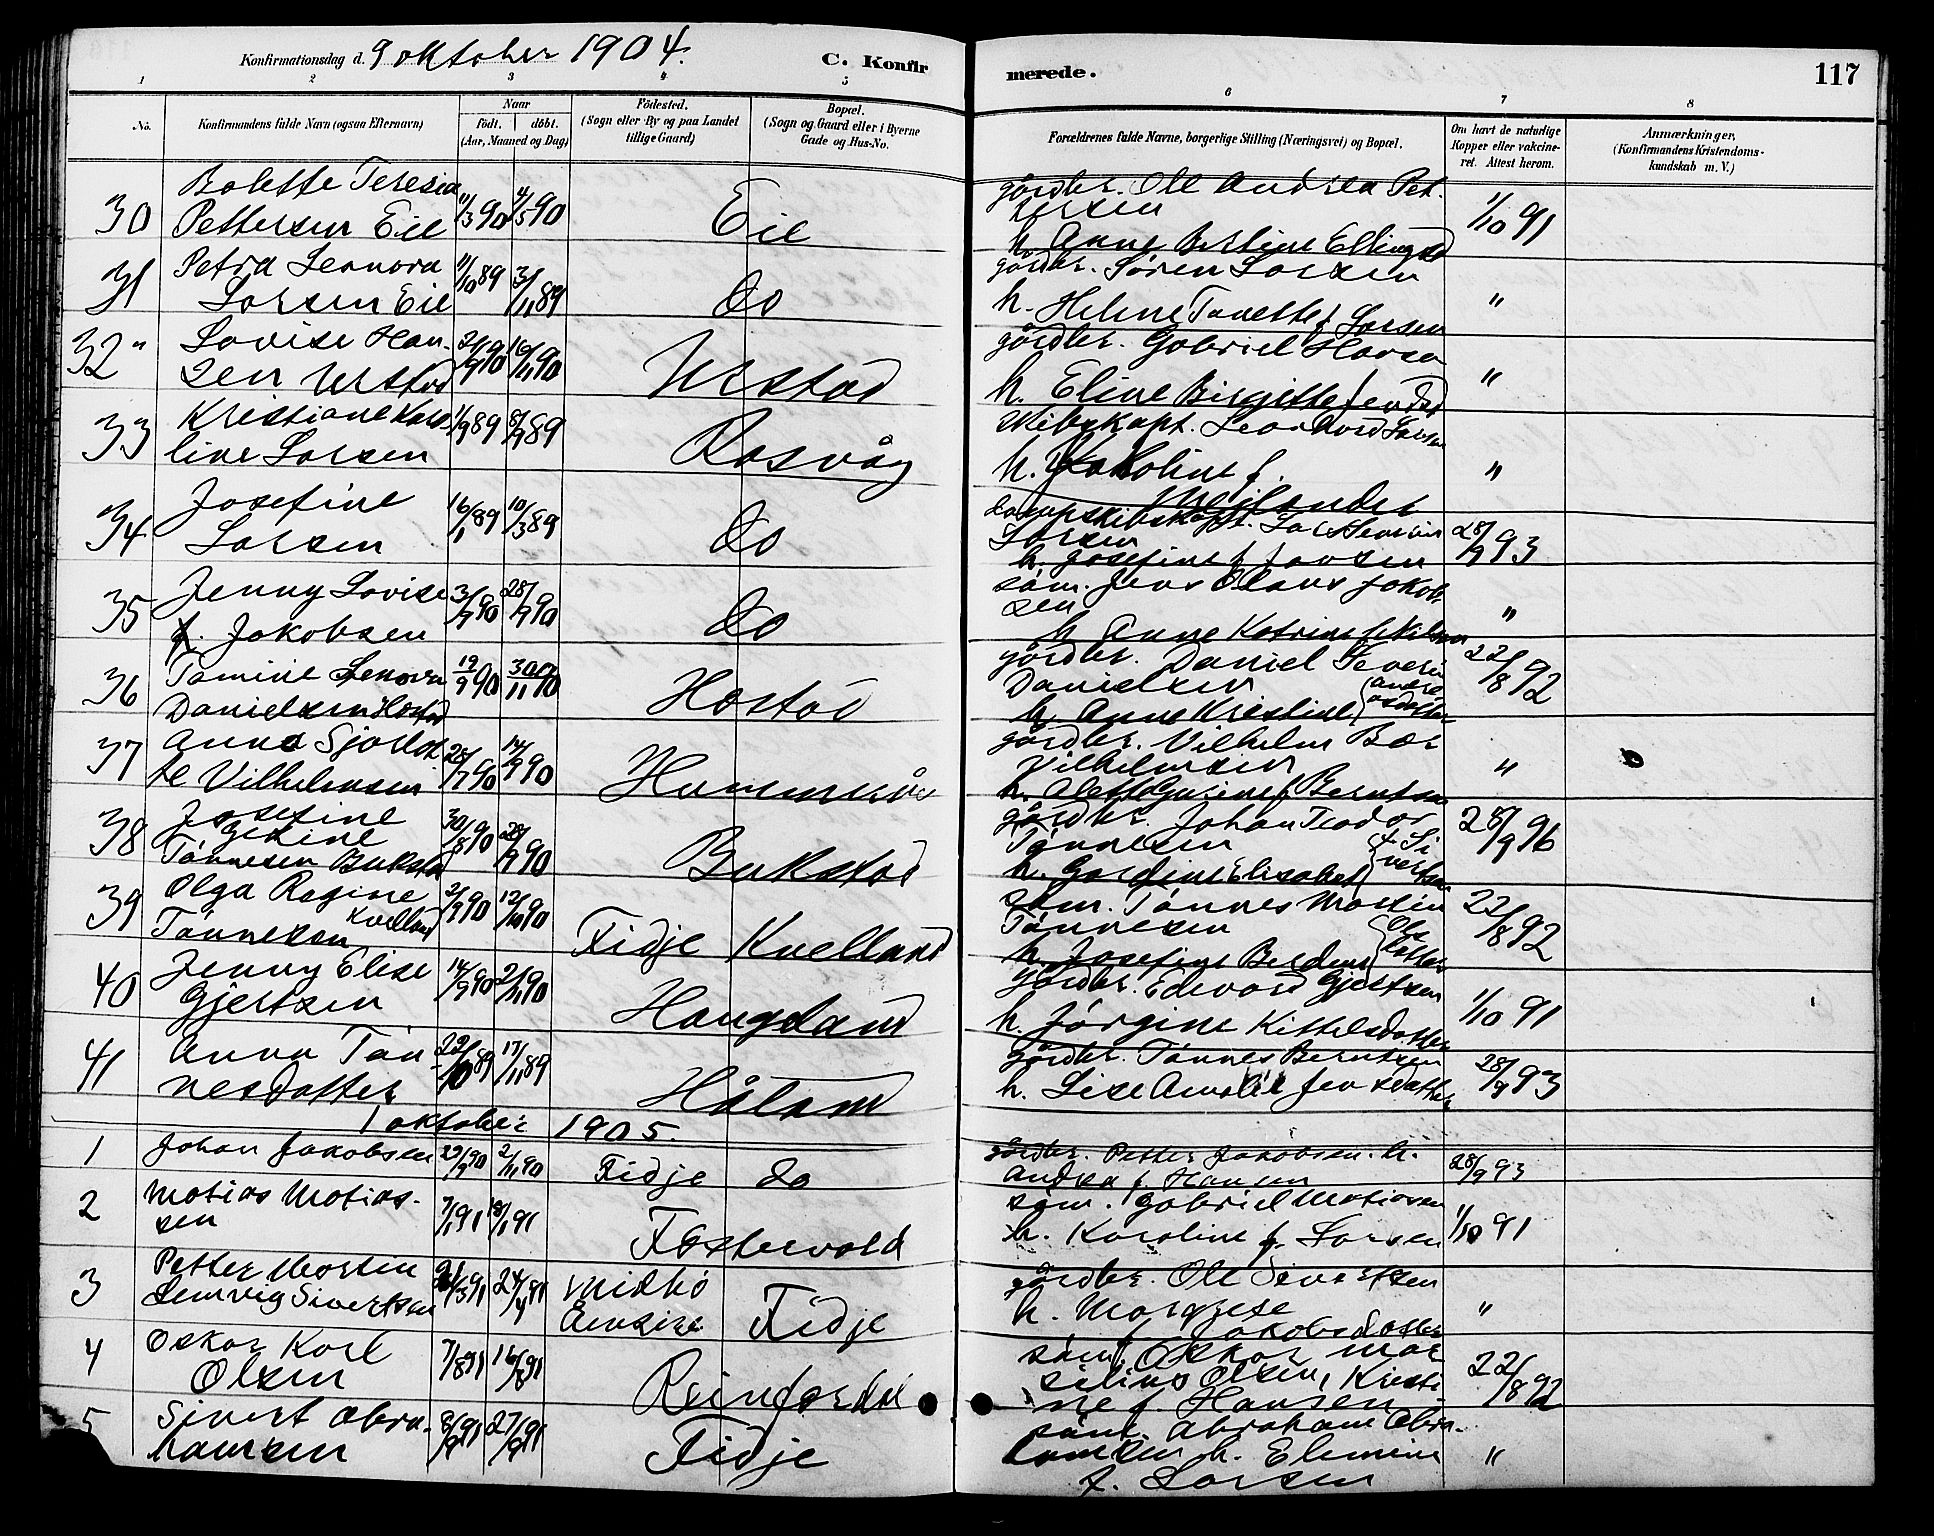 Konfirmationsdag d. 9 oktober 1904. C. Konfirmerede. 117
1 2 3 4 5 6 7 8
No. Konfirmandens fulde Navn (ogsaa Efternavn) Naar født. døbt. (Aar, Maaned og Dag) Fødested. (Sogn eller By og paa Landet tillige Gaard) Bopæl. (Sogn og Gaard eller i Byerne Gade og Hus-No. Forældrenes fulde Navne, borgerlige Stilling (Næringsvei) og Bopæl. Om havt de naturlige Kopper eller vakcineret. Attest herom. Anmærkninger, (Konfirmandens Kristendomskundskab m. V.)
30 Bolette Teresia Pettersen Eie 11/3 90 4/5 90 Eie gårdbr. Ole Andrea Pettersen h. Anne Bertine Ellingsd 1/10 91
31 Petra Leonora Larsen Eie 11/10 89 3/11 89 do gårdbr. Søren Larsen h. Helene Tonette f. Larsen "
32 Lovise Hansen Urstad 2/9 90 16/11 90 Urstad gårdbr. Gabriel Hansen h. Eline Birgitte Jensd "
33 Kristiane Karoline Larsen 1/9 89 8/9 89 Rasvåg skibskapt. Leonhard Larsen h. Karoline f. Meilander "
34 Josefine Larsen 16/1 89 10/3 89 do dampskibskapt. Lars Larsen h. Josefine f. Jansen 28/9 93
35 Jenny Lovise f. Jakobsen 3/9 90 28/9 90 do søm. Jens Olaus Jakobsen h Anne Katrine f. Nilsen "
36 Tomine Lenora Danielsen Hostad 19/9 90 30/11 90 Hostad gårdbr. Daniel Severin Danielsen h. Anne Kristine Andreasdatter 22/8 92
37 Anna Vilhelmsen 28/7 90 14/9 90 gårdbr. Vilhelm Bær Vilhelmsen h. Berntsen "
38 Josefine Tønnesen Bukstad 30/8 90 28/9 90 Bukstad gårdbr. Johan Teodor Tønnesen h. Gardine Elisabet f. Sivertsen 28/9 96
39 Olga Regine Tønnesen Kvelland 2/9 90 12/10 90 Fidje Kvelland søm. Tønnes Martin Tønnesen h. Josefine Olsdatter 22/8 92
40 Jenny Elise Gjertsen 14/9 90 2/11 90 Haugeland gårdbr. Edevard Gjertsen h. Jørgine Kittelsdatter 1/10 91
41 Anna Tønnesdatter 22/10 89 17/11 89 Håland gårdbr. Tønnes Berntsen h. Lise Amalie Jensdatter 28/9 93
1 oktober 1905.
1 Johan Jakobsen 29/9 90 2/11 90 Fidje do gårdbr. Petter Jakobsen. h. Andrea f. Hansen 28/9 93
2 Matias Matiassen 7/1 91 18/1 91 Fostervold søm. Gabriel Matiassen h. Karoline f. Larsen 1/10 91
3 Petter Martin Lemvig Sivertsen 24/4 91 Fidje gårdbr. Ole Sivertsen h. Margrete Jakobsdatter "
4 Oskar Karl Olsen 7/8 91 16/8 91 Reinfardal søm. Oskar Marselius Olsen, Kristine f. Hansen 22/8 92
5 Sivert Abrahamsen 8/9 91 27/9 91 Fidje søm. Abraham Abrahamsen h. Elemine f. Larsen "